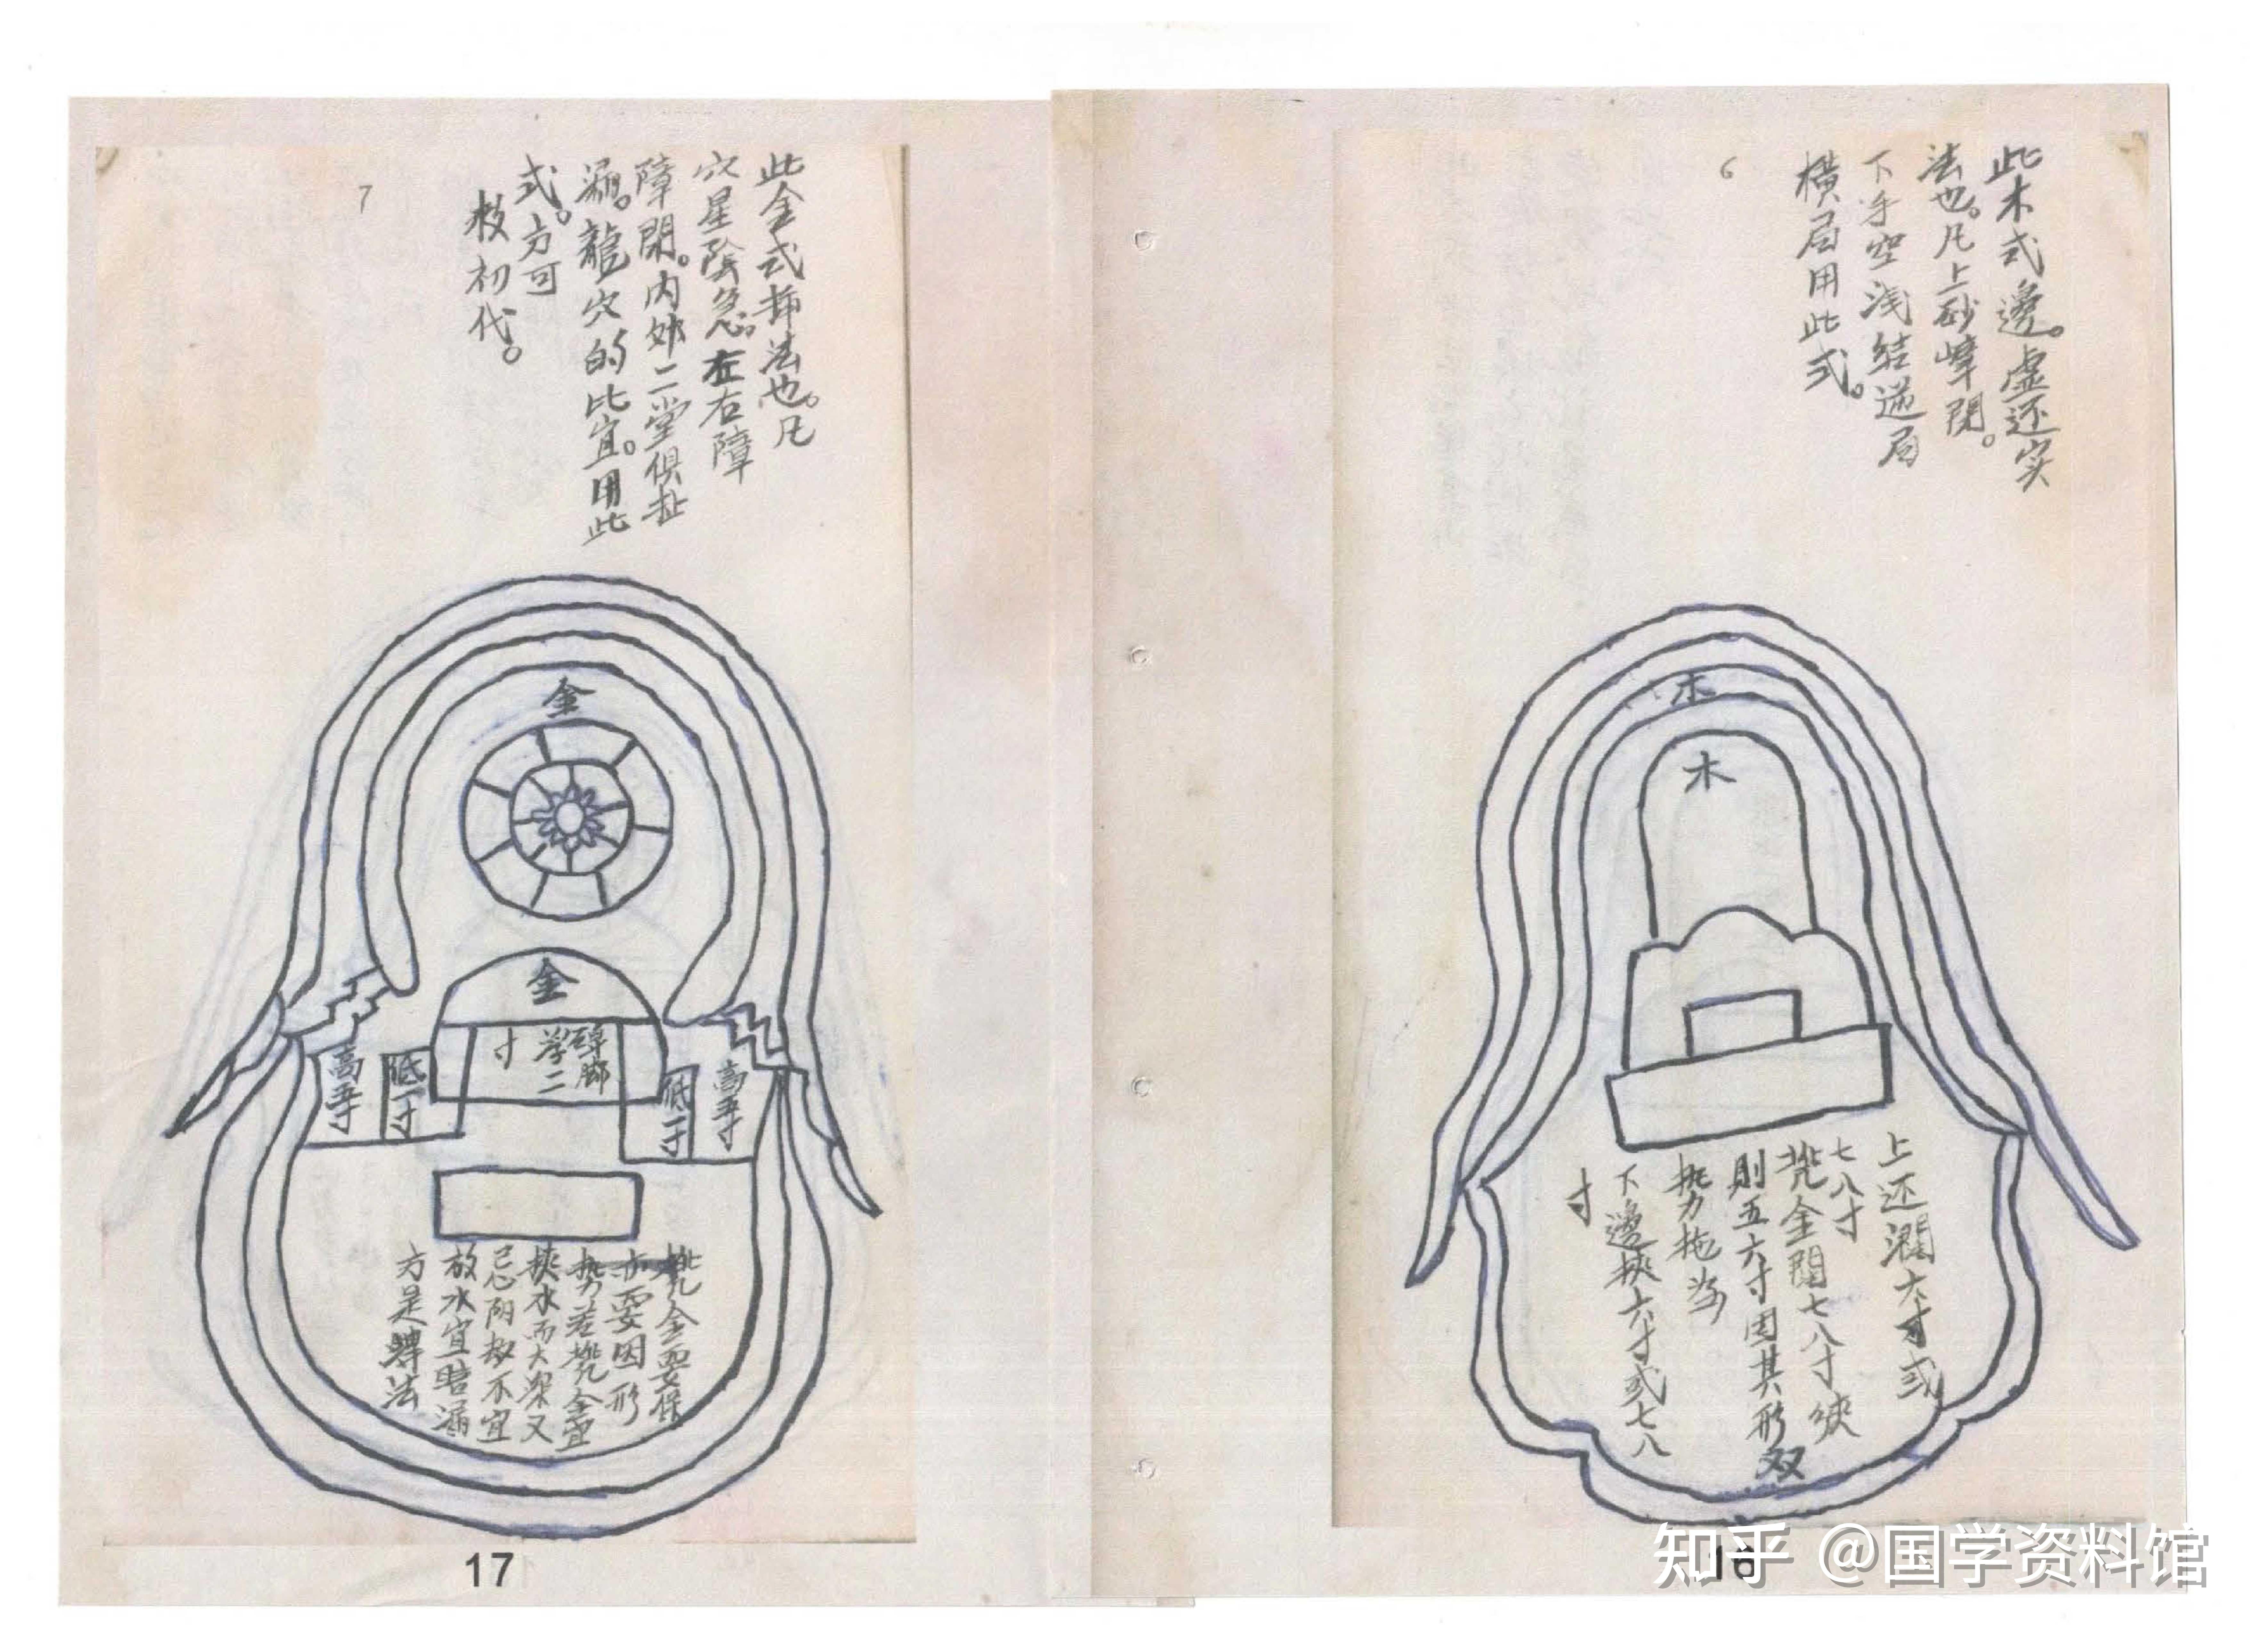 6
此木式邊。虚还实
法也。凡上砂嶂閉。
下手空浅结逆局
横局用此式。
木
木
上还濶六寸或
七八寸
兠金闊七八寸狹
則五六寸因其形
势拖出
下邊狹六寸或七八
寸
双
16
7
此金式抑法也。凡
穴星陰急。左右障
障閉。内外二堂俱
漏。龍穴的比宜。用此
式。方可
救初代。
金
金
碑廊
学二
寸
高五寸
低一寸
低一寸
高五寸
兠金要保
要因形
势若兠金宜
狹水而大深又
忌阴故不宜
放水宜暗漏
方是法
17
知乎 @国学资料馆